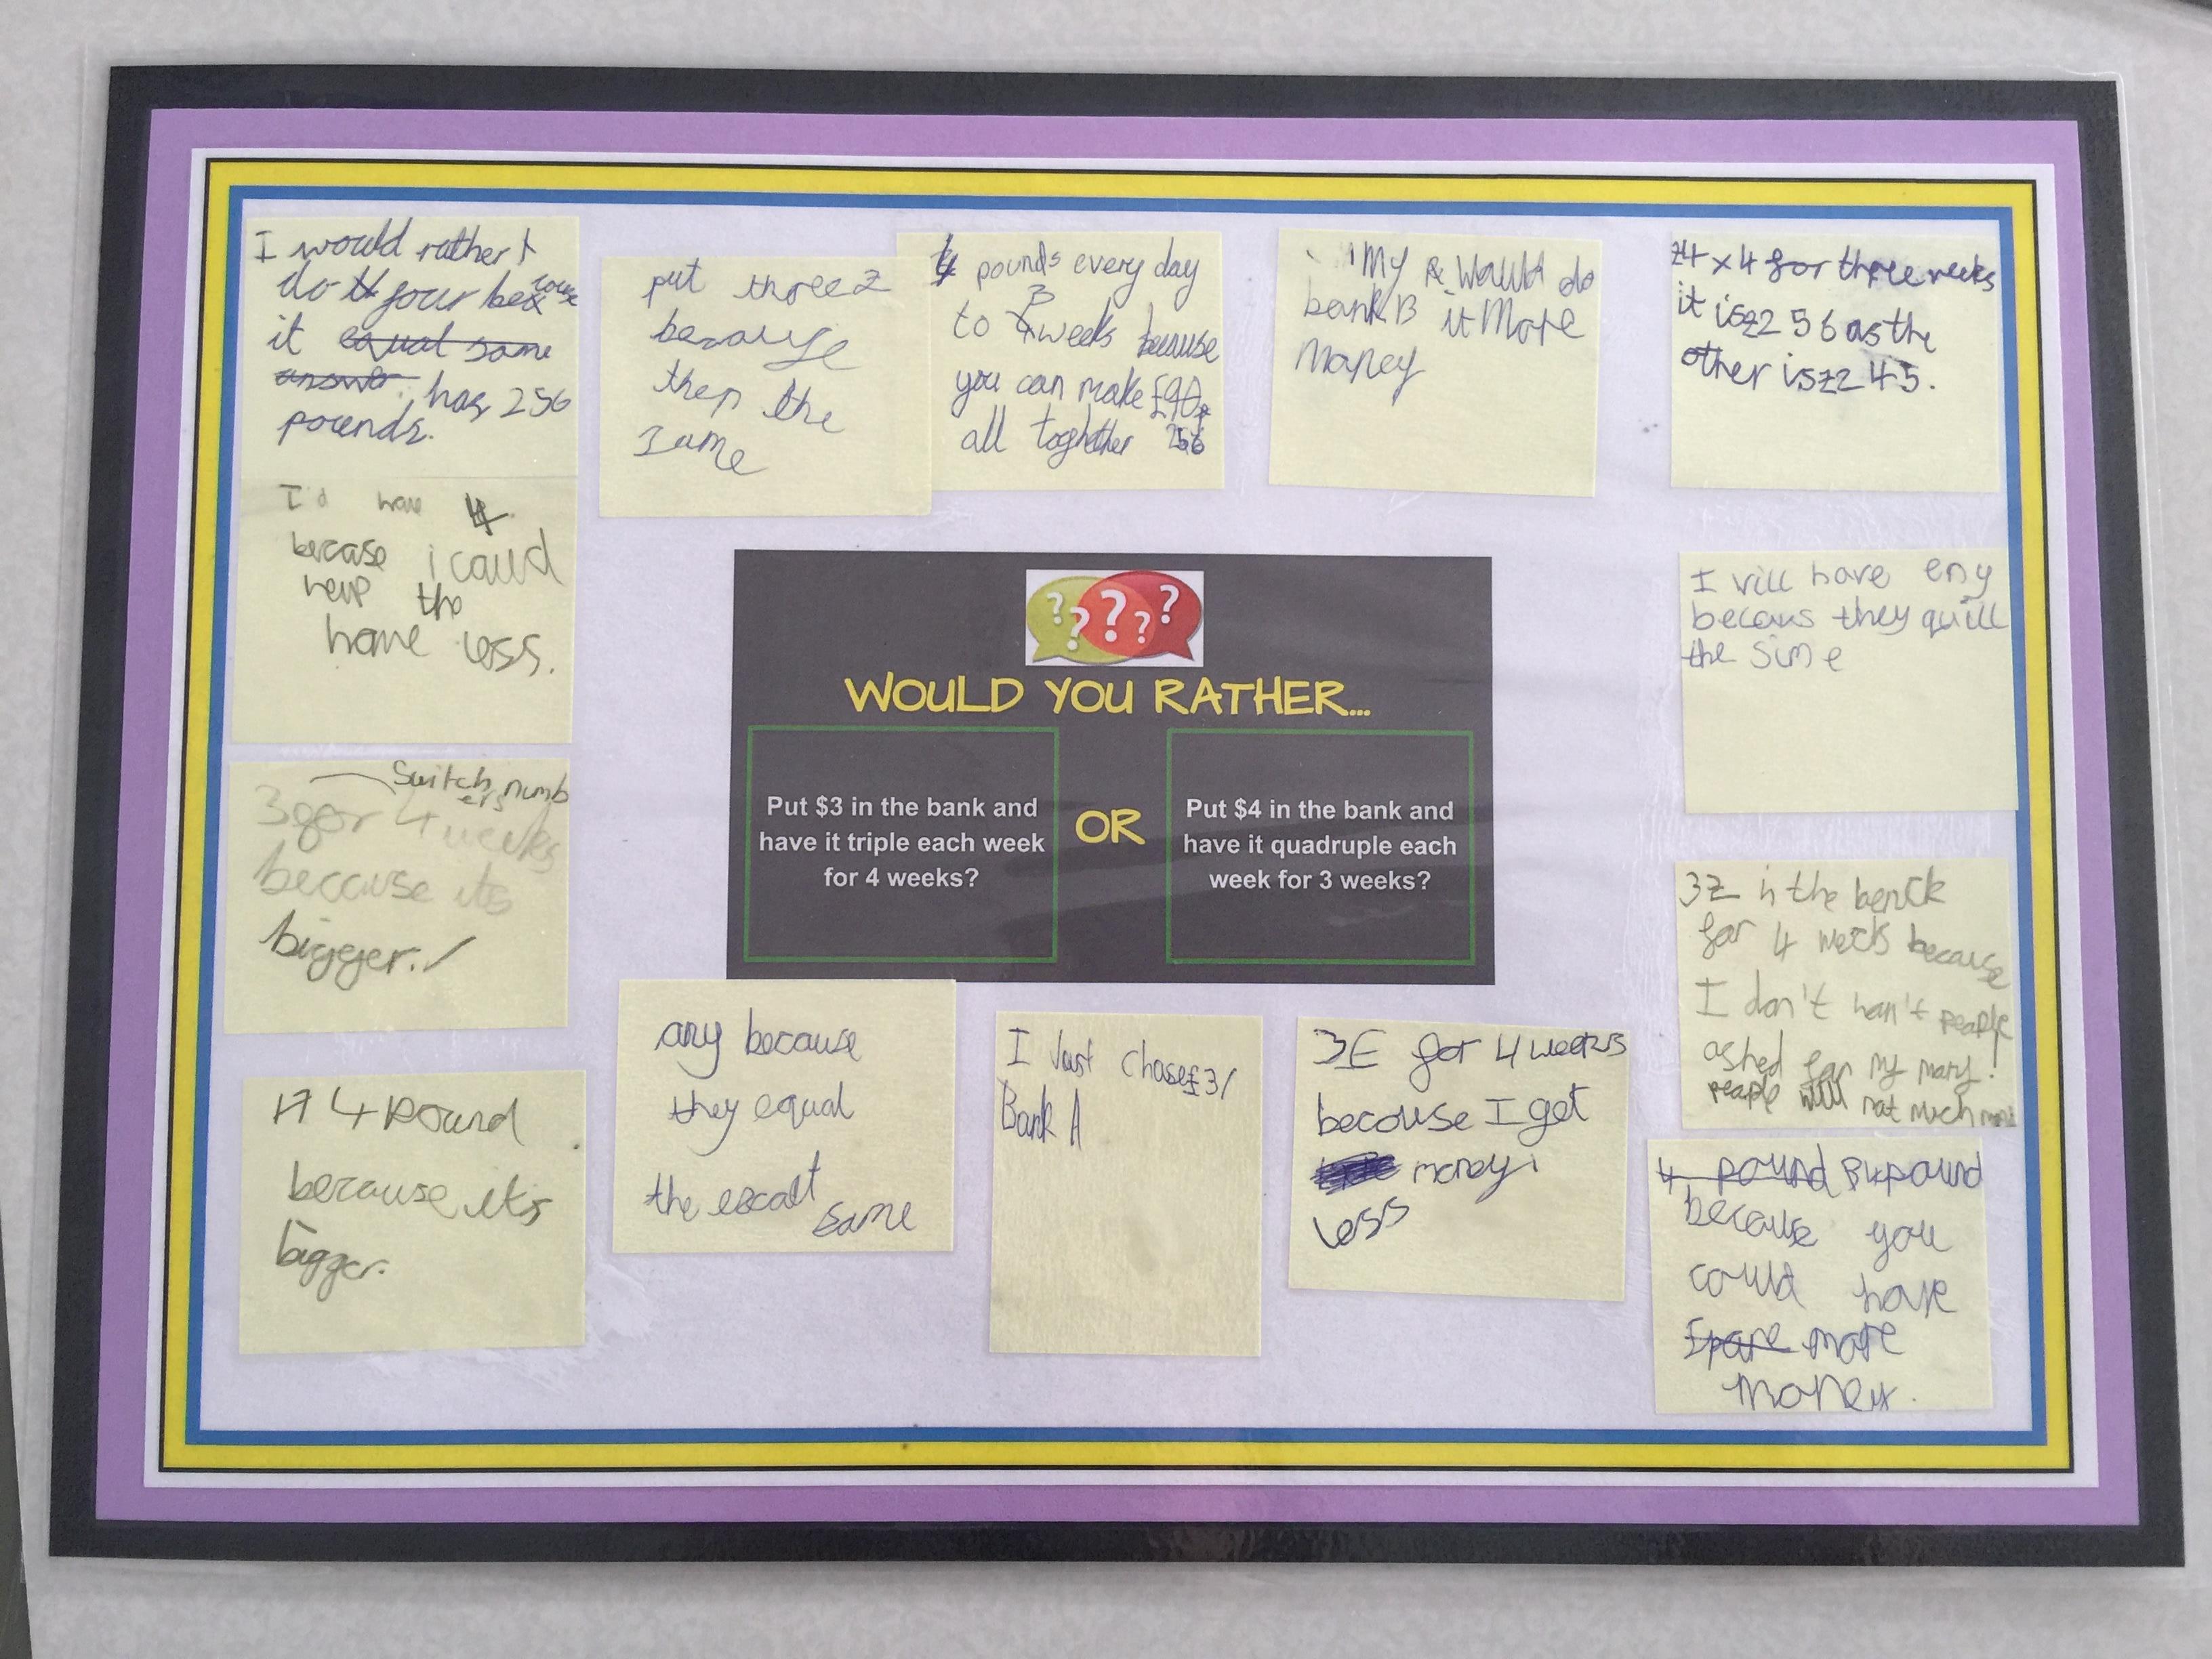 I would rather
do four because
it equal same
answer has 256
pounds.
put three £
because
then the
same
4 pounds every day
3
to weeks because
you can make £90
all toghther 256
My would do
bank B it More
Money
£4 x 4 for three weeks
it is £256 as the
other is £245.
I'd have 4
because i caud
help the
home less.
I vill have eny
becaus they quill
the Sime
? ? ? ? ?
WOULD YOU RATHER...
Put $3 in the bank and
have it triple each week
for 4 weeks?
OR
Put $4 in the bank and
have it quadruple each
week for 3 weeks?
Switch numb
ers
3 for 4 weeks
because its
bigger.
3£ in the benck
for 4 weeks because
I don't wan't people
asked for my mony!
people will not much
4 pound
because its
bigger.
any because
they equal
the excatt
same
I Just chose £3/
Bank A
3£ for 4 weeks
because I get
money
less
4 pound B 4 pound
because you
could have
Spare more
money.